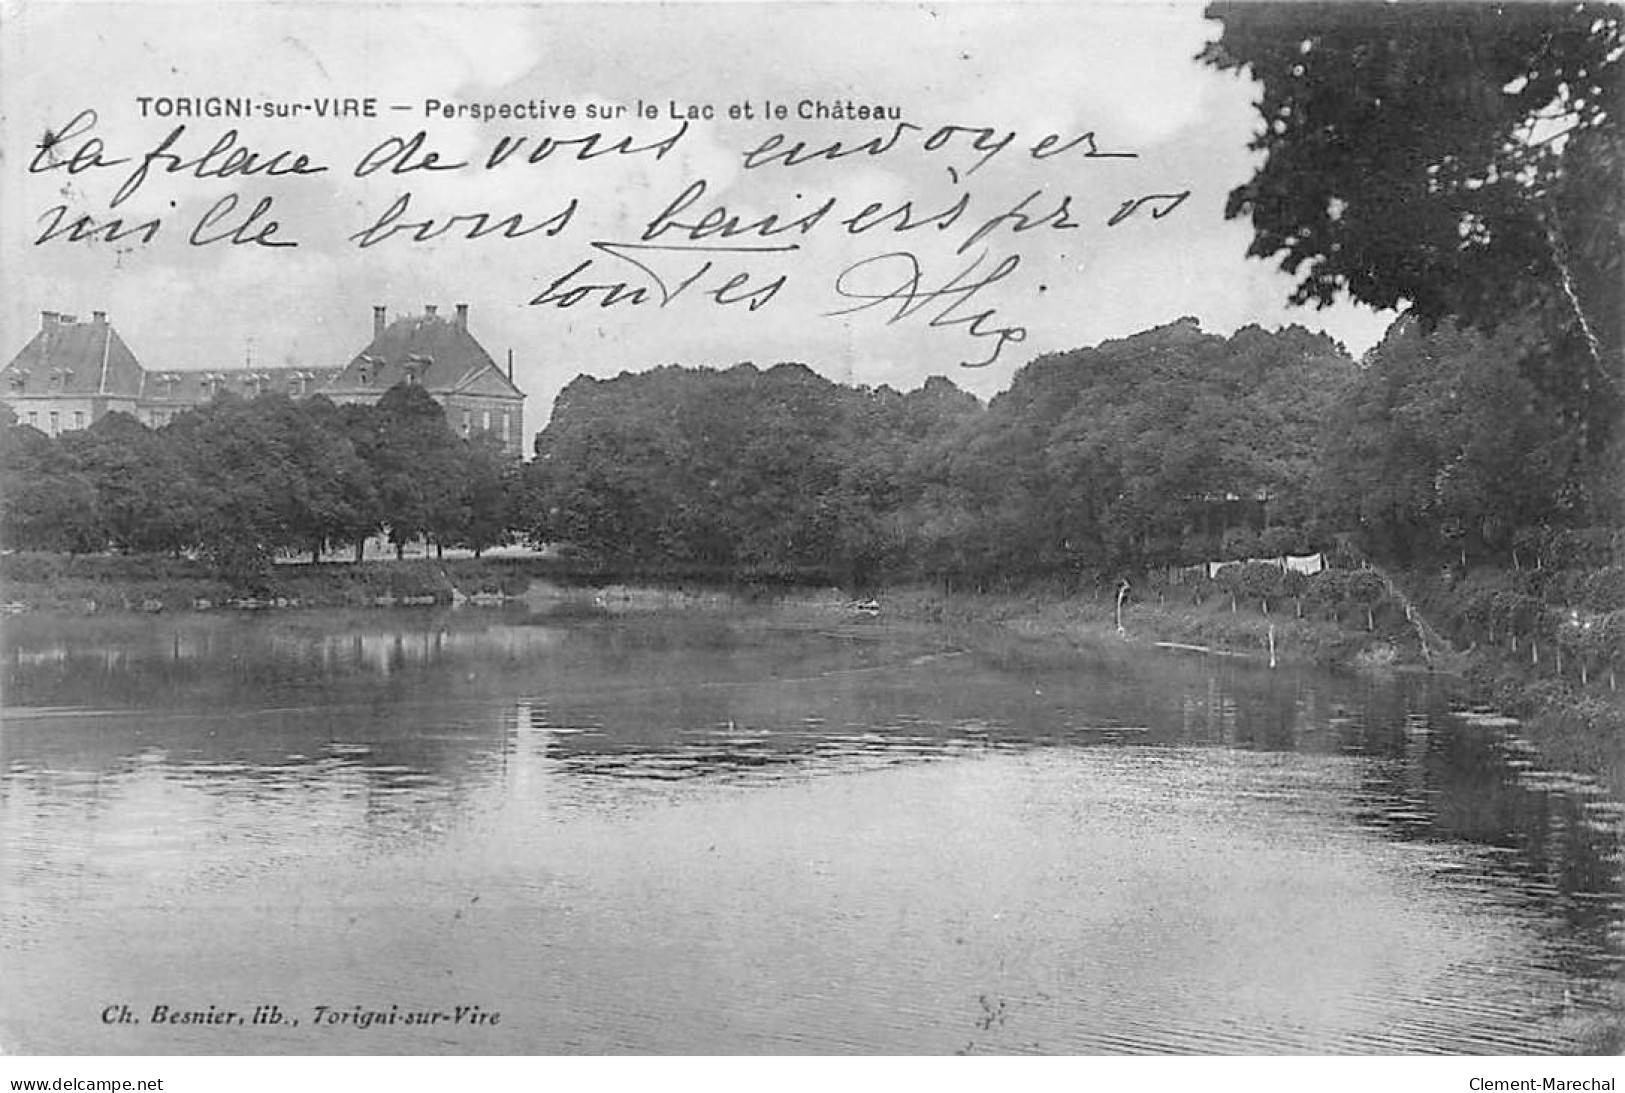 TORIGNI-sur-VIRE — Perspective sur le Lac et le Château
la place de vous envoyer
mille bons baisers
toutes
Ch. Besnier, lib., Torigni-sur-Vire
www.delcampe.net
Clement-Marechal